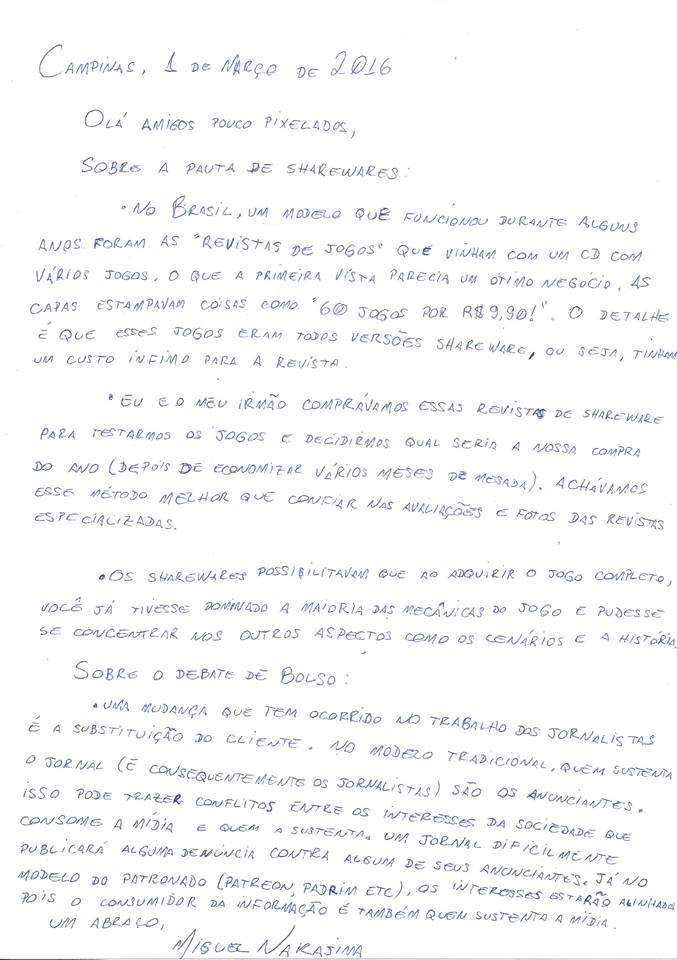 CAMPINAS, 1 DE MARÇO DE 2016
OLÁ AMIGOS POUCO PIXELADOS,
SOBRE A PAUTA DE SHAREWARES:
• NO BRASIL, UM MODELO QUE FUNCIONOU DURANTE ALGUNS
ANOS FORAM AS "REVISTAS DE JOGOS" QUE VINHAM COM UM CD COM
VÁRIOS JOGOS, O QUE A PRIMEIRA VISTA PARECIA UM ÓTIMO NEGÓCIO. AS
CAPAS ESTAMPAVAM COISAS COMO "60 JOGOS POR R$9,90!". O DETALHE
É QUE ESSES JOGOS ERAM TODOS VERSÕES SHAREWARE, OU SEJA, TINHAM
UM CUSTO ÍNFIMO PARA A REVISTA.
• EU E O MEU IRMÃO COMPRÁVAMOS ESSAS REVISTAS DE SHAREWARE
PARA TESTARMOS OS JOGOS E DECIDIRMOS QUAL SERIA A NOSSA COMPRA
DO ANO (DEPOIS DE ECONOMIZAR VÁRIOS MESES DE MESADA). ACHÁVAMOS
ESSE MÉTODO MELHOR QUE CONFIAR NAS AVALIAÇÕES E FOTOS DAS REVISTAS
ESPECIALIZADAS.
• OS SHAREWARES POSSIBILITAVAM QUE AO ADQUIRIR O JOGO COMPLETO,
VOCÊ JÁ TIVESSE DOMINADO A MAIORIA DAS MECÂNICAS DO JOGO E PUDESSE
SE CONCENTRAR NOS OUTROS ASPECTOS COMO OS CENÁRIOS E A HISTÓRIA.
SOBRE O DEBATE DE BOLSO:
• UMA MUDANÇA QUE TEM OCORRIDO NO TRABALHO DOS JORNALISTAS
É A SUBSTITUIÇÃO DO CLIENTE. NO MODELO TRADICIONAL, QUEM SUSTENTA
O JORNAL (E CONSEQUENTEMENTE OS JORNALISTAS) SÃO OS ANUNCIANTES.
ISSO PODE TRAZER CONFLITOS ENTRE OS INTERESSES DA SOCIEDADE QUE
CONSOME A MÍDIA E QUEM A SUSTENTA. UM JORNAL DIFICILMENTE
PUBLICARÁ ALGUMA DENÚNCIA CONTRA ALGUM DE SEUS ANUNCIANTES. JÁ NO
MODELO DO PATRONADO (PATREON, PADRIM ETC), OS INTERESSES ESTARÃO ALINHADOS
POIS O CONSUMIDOR DA INFORMAÇÃO É TAMBÉM QUEM SUSTENTA A MÍDIA.
UM ABRAÇO,
MIGUEL NAKAJIMA